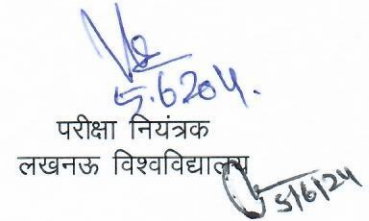 5.6.2024.
परीक्षा नियंत्रक
लखनऊ विश्वविद्यालय
5/6/24